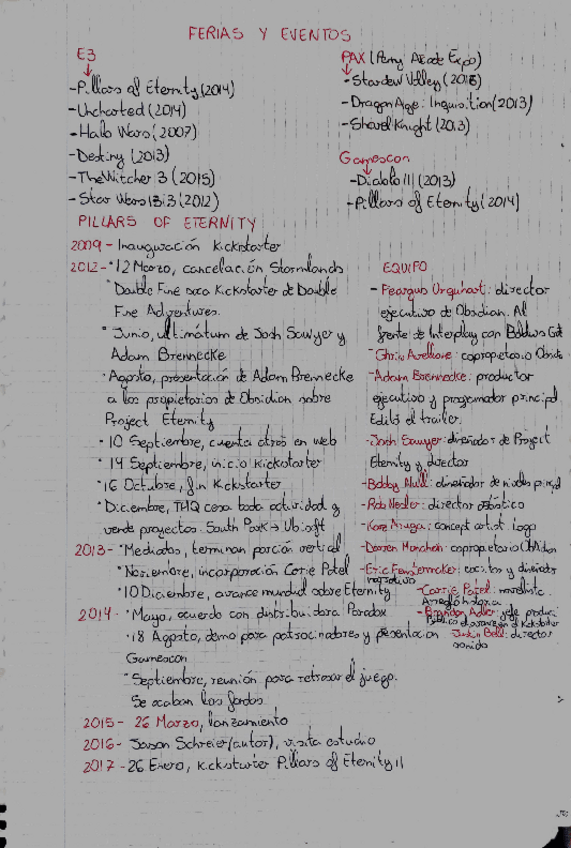 FERIAS Y EVENTOS
E3
- Pillars of Eternity (2014)
- Uncharted (2014)
- Halo Wars (2007)
- Destiny (2013)
- The Witcher 3 (2015)
- Star Wars 1313 (2012)
PAX (Penny Arcade Expo)
- Stardew Valley (2015)
- Dragon Age: Inquisition (2013)
- Shovel Knight (2013)
Gamescon
- Diablo III (2013)
- Pillars of Eternity (2014)
PILLARS OF ETERNITY
2009 - Inauguración Kickstarter
2012 - 12 Marzo, cancelación Stormlands
Double Fine saca Kickstarter de Double
Fine Adventures.
Junio, ultimátum de Josh Sawyer y
Adam Brennecke
Agosto, presentación de Adam Brennecke
a los propietarios de Obsidian sobre
Project Eternity
10 Septiembre, cuenta atrás en web
14 Septiembre, inicio Kickstarter
16 Octubre, fin Kickstarter
Diciembre, THQ cesa toda actividad y
vende proyectos. South Park → Ubisoft
2013 - Mediados, terminan porción vertical
Noviembre, incorporación Carrie Patel
10 Diciembre, avance mundial sobre Eternity
2014 - Mayo, acuerdo con distribuidora Paradox
18 Agosto, demo para patrocinadores y presentacion
Gamescon
Septiembre, reunión para retrasar el juego.
Se acaban los fondos
2015 - 26 Marzo, lanzamiento
2016 - Jason Schreier (autor), visita estudio
2017 - 26 Enero, Kickstarter Pillars of Eternity II
EQUIPO
- Feargus Urquhart: director
ejecutivo de Obsidian. Al
frente de Interplay con Baldurs Gate
- Chris Avellone: copropietario Obsidian
- Adam Brennecke: productor
ejecutivo y programador principal
Editó el trailer.
- Josh Sawyer: diseñador de Project
Eternity y director
- Bobby Null: diseñador de niveles principal
- Rob Nesler: director artístico
- Kaz Aruga: concept artist. Logo
- Darren Monahan: copropietario Obsidian
- Eric Fenstermaker: escritor y diseñador
narrativo
- Carrie Patel: novelista
Arregló historia
- Brandon Adler: jefe produc.
Publico el avance en el Kickstarter
Justin Bell: director
sonido